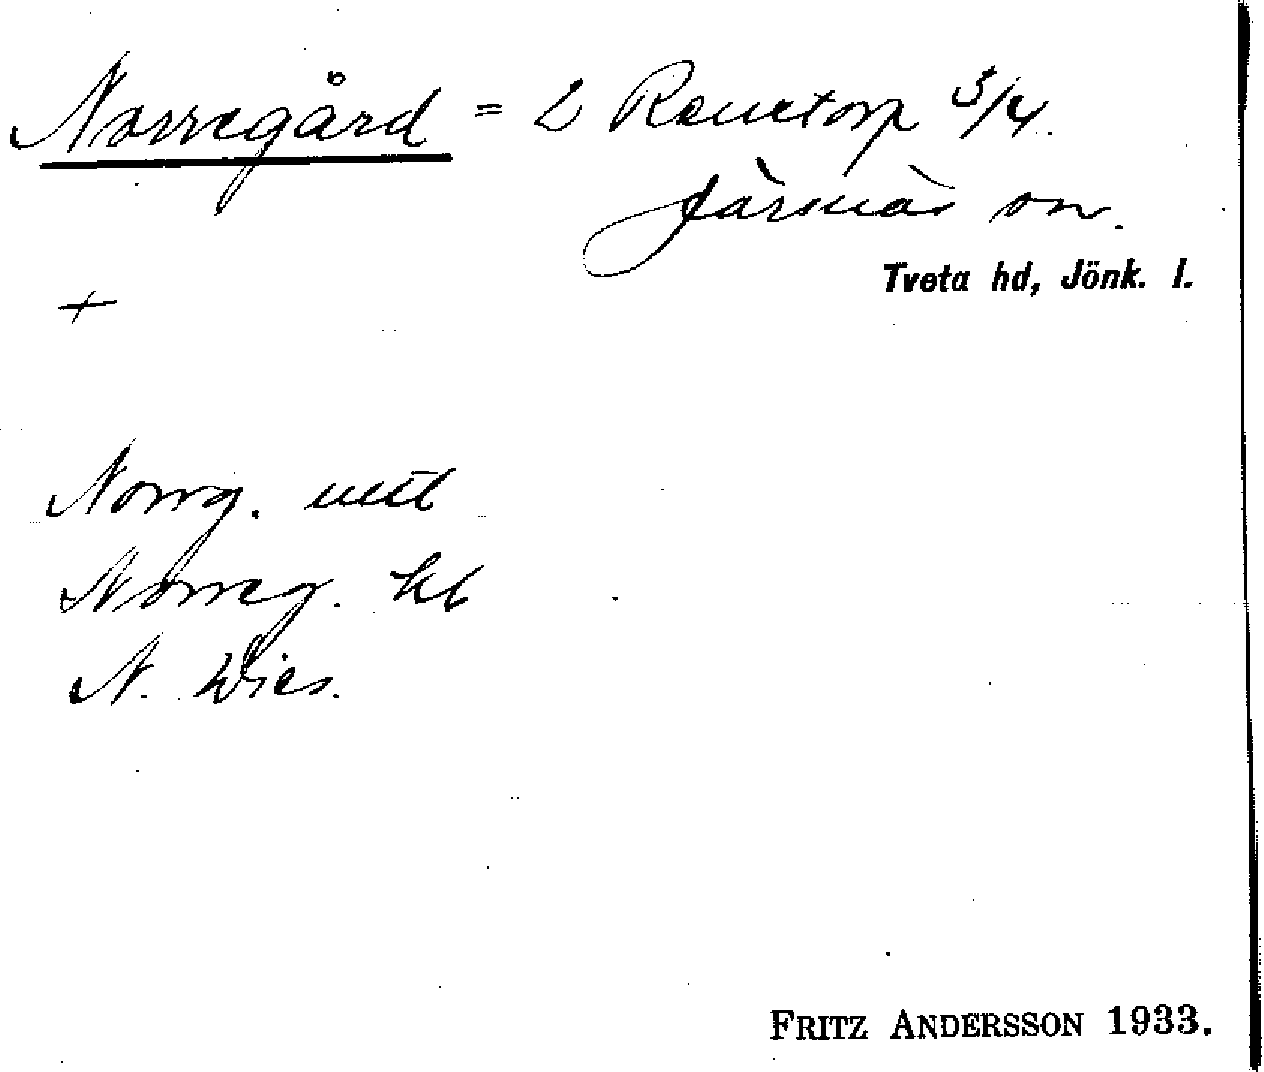 Norregård = L Renstorp 3/4.
Järsnäs sn.
Tveta hd, Jönk. l.
+
Norrg. utt
Norreg. kb
N. Wies.
FRITZ ANDERSSON 1933.